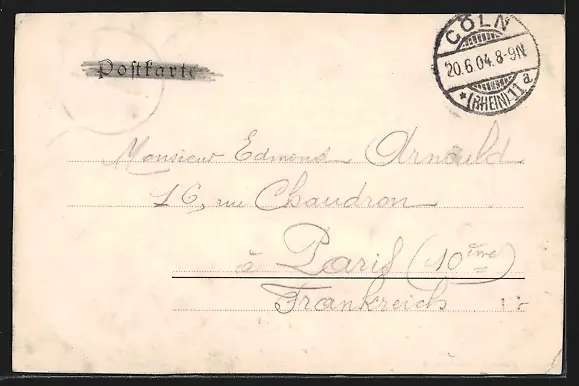 CÖLN
20.6.04.8-9N
* (RHEIN) 11 a
Postkarte
Monsieur Edmond Arnould
16, rue Chaudron
à Paris (10ème)
Frankreich